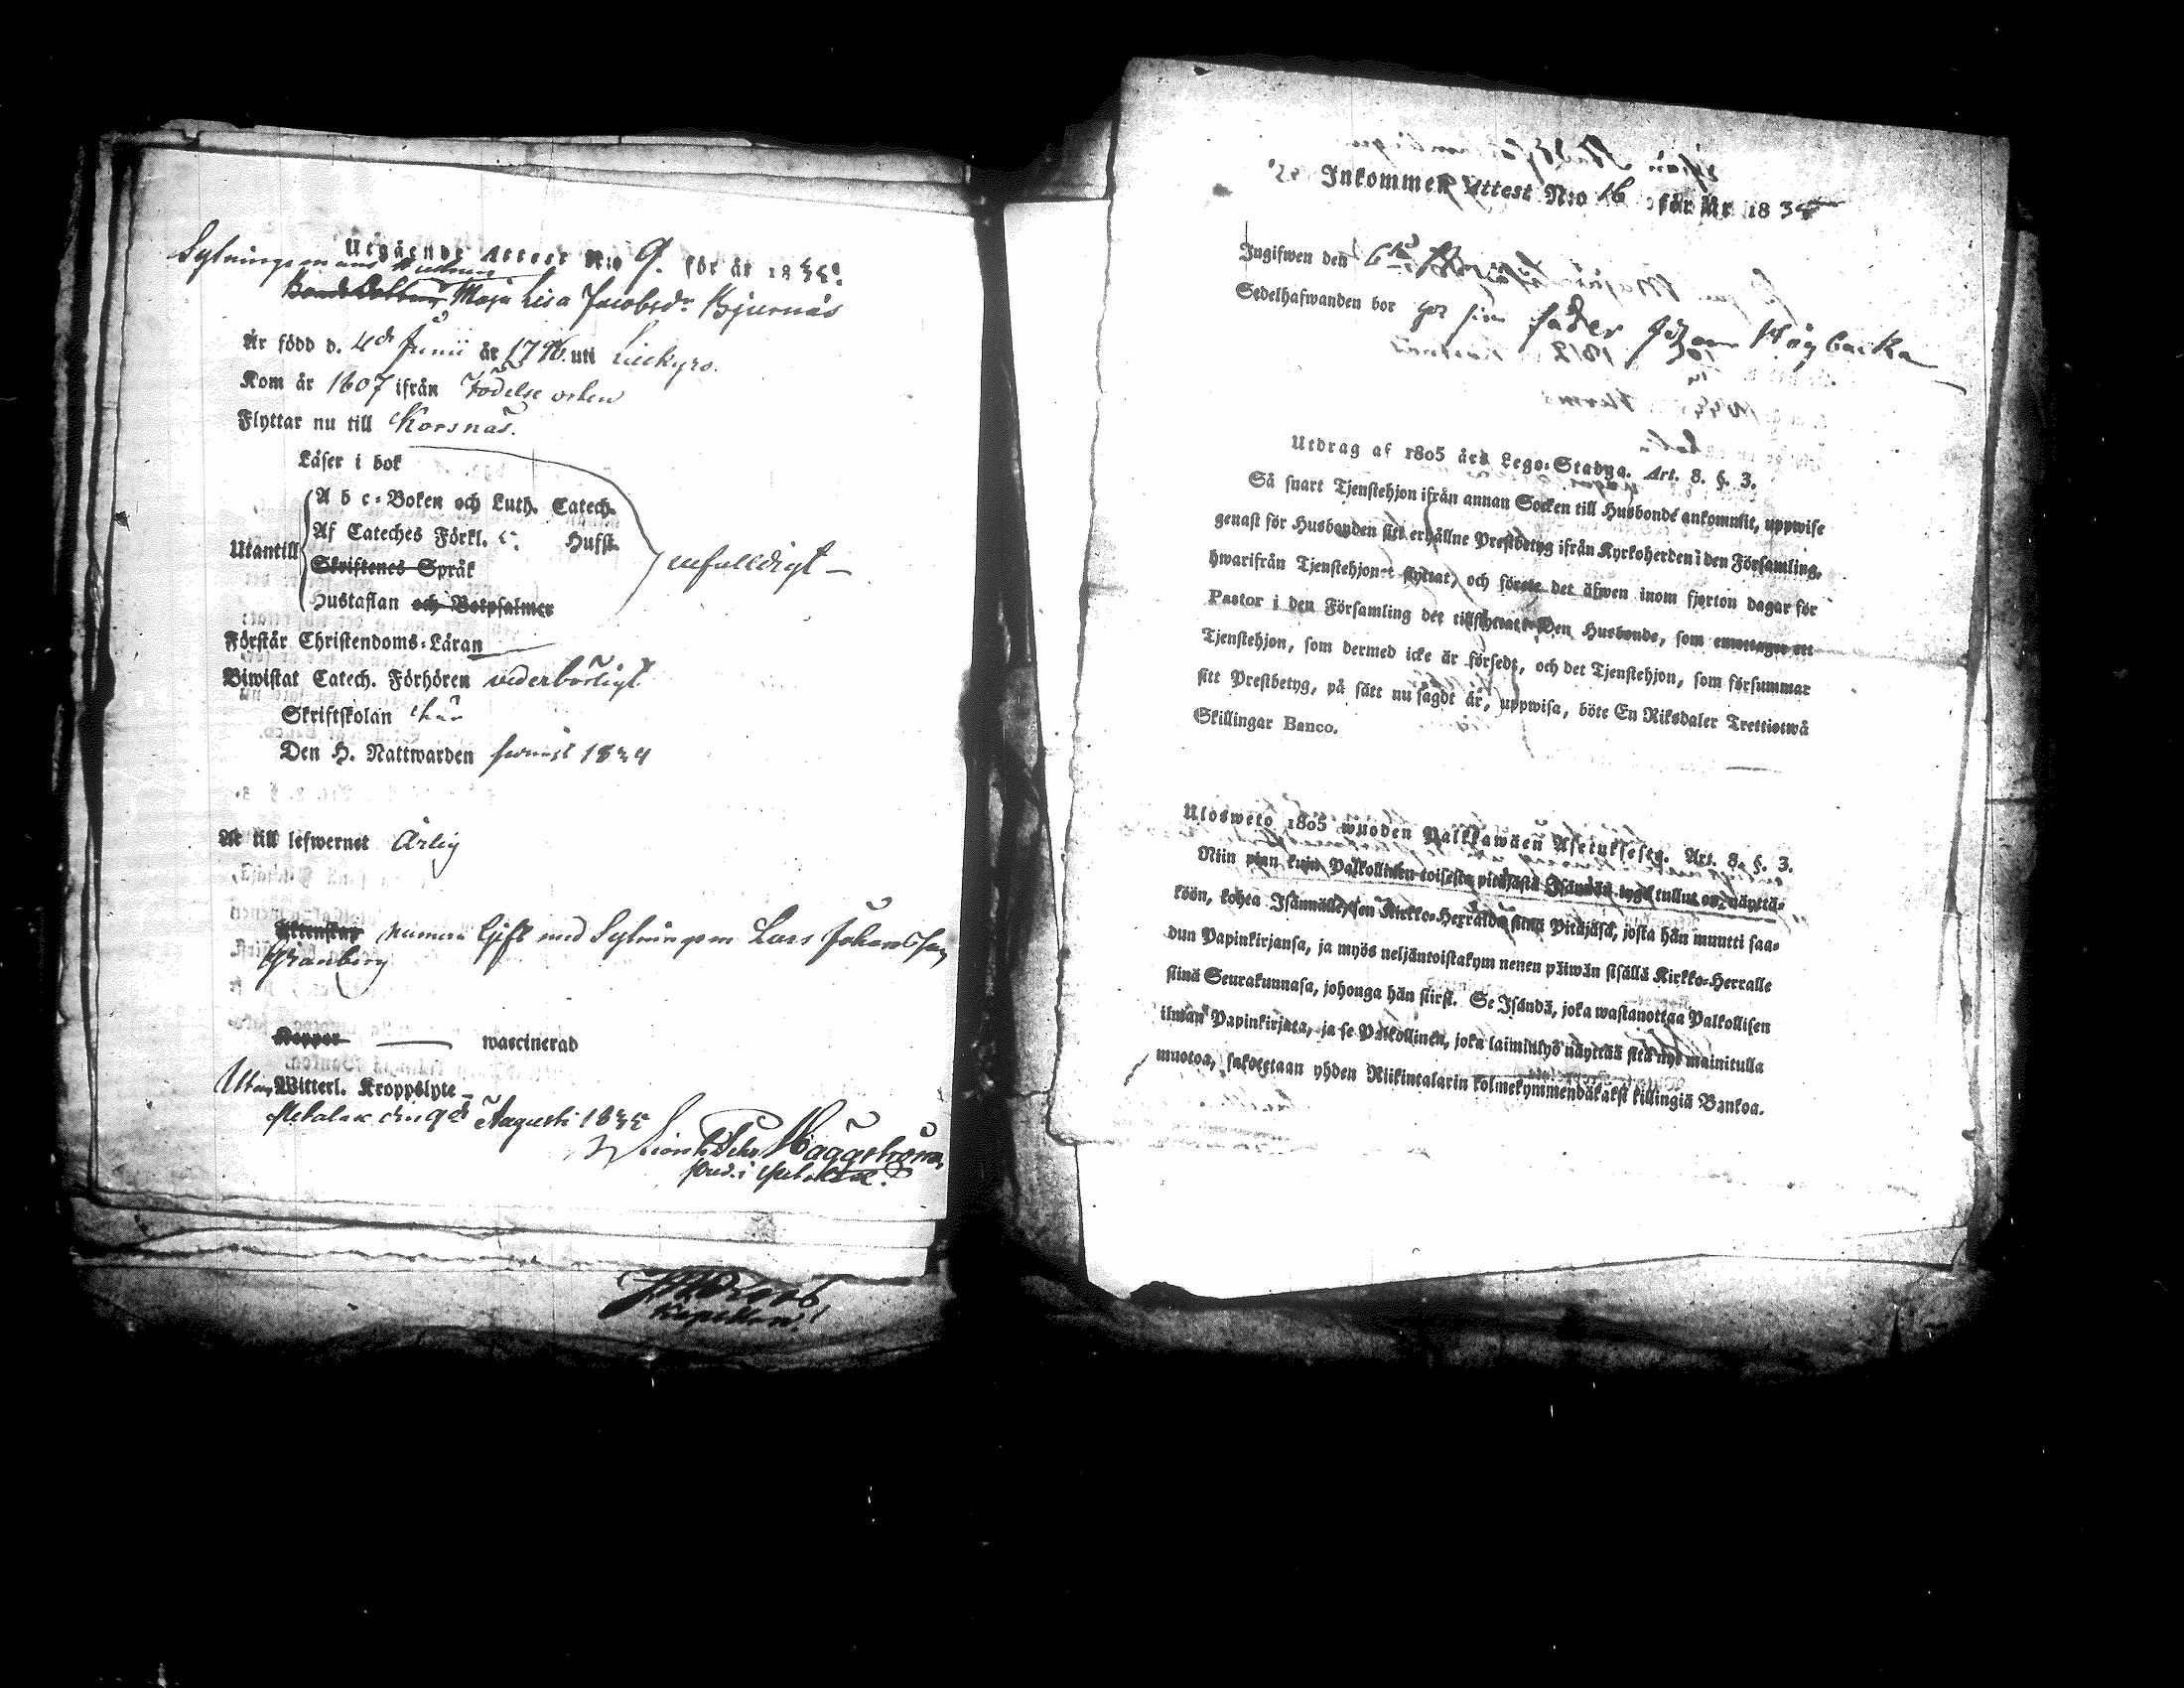 Utgående Attest N:o 9. för år 1835.
Sytningsmans Hustrun
Maja Lisa Jacobsdr Bjurnäs
Är född d. 4de Junii år 1796. uti Lillkyro.
Kom år 1807 ifrån Födelse orten
Flyttar nu till Korsnäs.
Läser i bok
A b c-Boken och Luth. Catech.
Af Cateches Förkl. 5. Hufst.
Utantill
Skriftenes Språk
Hustaflan och Botpsalmer
Förstår Christendoms-Läran
Biwistat Catech. Förhören vederbörligt
Skriftskolan här
Den H. Nattwarden senast 1834
At till lefwernet Ärlig
Ektenskap numera Gift med Sytningsm Lars Johansson
Granberg
Koppor waccinerad
Utan Witterl. Kroppslyte
Petalax den 9de Augusti 1835
Häggström
Pred. i Petalax.
Kapellan.
Inkommen Attest N:o 16 för År 183
Ingifwen den 6
Sedelhafwanden bor hos sin fader Häggbacka
Utdrag af 1805 års Lego-Stadga. Art. 8. §. 3.
Så snart Tjenstehjon ifrån annan Socken till Husbonde ankommit, uppwise
genast för Husbonden sitt erhållne Prestbetyg ifrån Kyrkoherden i den Församling,
hwarifrån Tjenstehjonet flyttat, och förete det äfwen inom fjorton dagar för
Pastor i den Församling det tillflyttat. Den Husbonde, som emottager ett
Tjenstehjon, som dermed icke är försedt, och det Tjenstehjon, som försummar
sitt Prestbetyg, på sätt nu sagdt är, uppwisa, böte En Riksdaler Trettiotwå
Skillingar Banco.
Ulosweto 1805 wuoden Palkkawäen Asetuksesta. Art. 8. §. 3.
Niin pian kuin Palkollinen toisesta pitäjästä Isännän tygö tullut on, näyttä-
köön, kohta Isännällensen Kirkko-Herralda siinä Pitäjäsä, josta hän muutti saa-
dun Papinkirjansa, ja myös neljäntoistakym nenen päiwän sisällä Kirkko-Herralle
siinä Seurakunnasa, johonga hän siirst. Se Isändä, joka wastanottaa Palkollisen
ilman Papinkirjata, ja se Palkollinen, joka laiminlyö näyttää sitä nyt mainitulla
muotoa, sakotetaan yhden Riikintalarin kolmekymmendäkaksi killingiä Bankoa.